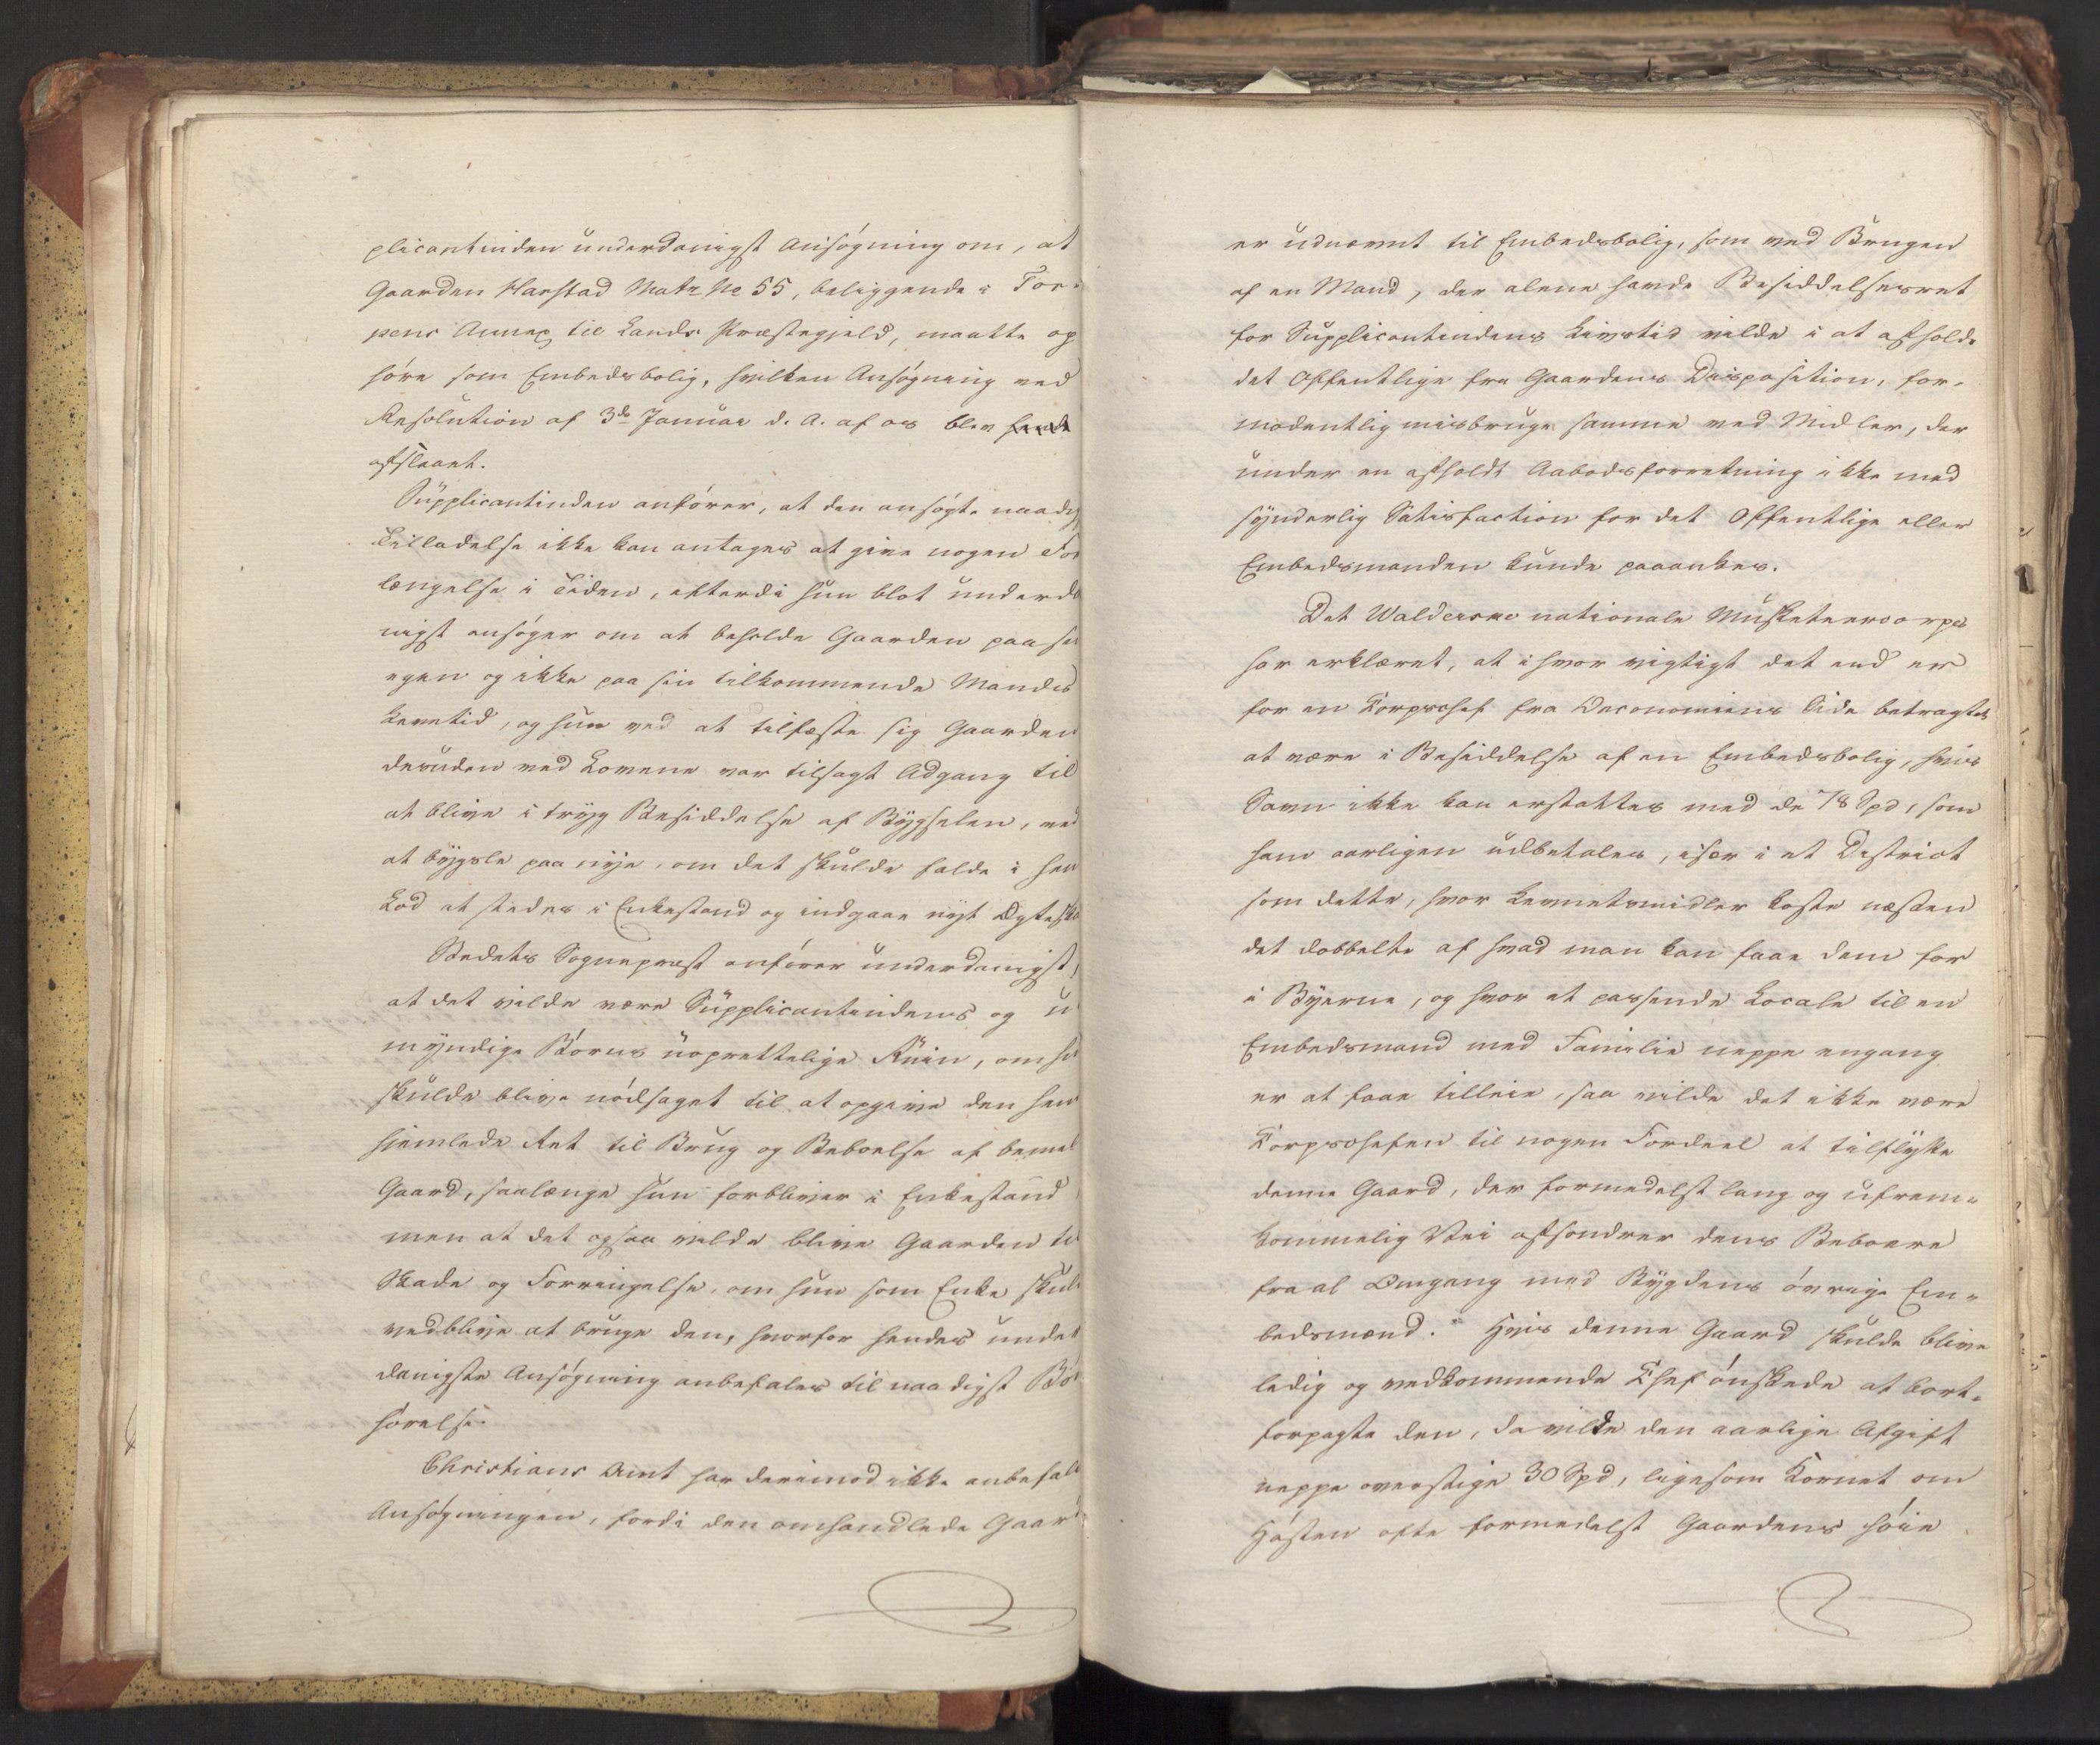 plicantinden underdanigst Ansøgning om, at
Gaarden Harstad Matr No 55, beliggende i Tor-
pens Annex til Lands Præstegjeld, maatte op
høre som Embedsbolig, hvilken Ansøgning ved
Resolution af 3de Januar d. A. af os blev
afslaaet.
Supplicantinden anfører, at den ansøgte naadig
Tilladelse ikke kan antages at give nogen For
længelse i Tiden, efterdi hun blot underda
nigst ansøger om at beholde Gaarden paa sin
egen og ikke paa sin tilkommende Mands
Levetid, og hun ved at tilfæste sig Gaarden
desuden ved Lovene var tilsagt Adgang til
at blive i tryg Besiddelse af Bygselen, ved
at bygsle paa nye, om det skulde falde i hen
Lod at stedes i Enkestand og indgaae nyt Ægteska
Stedets Sognepræst anfører underdanigst,
at det vilde være Supplicantindens og u
myndige Børns uoprettelige Ruin, om hu
skulde blive nødsaget til at opgive den hen
hjemlede Ret til Brug og Beboelse af bemel
Gaard, saalænge hun forbliver i Enkestand
men at det ogsaa vilde blive Gaarden til
Skade og Forringelse, om hun som Enke skul
vedblive at bruge den, hvorfor hendes under
danigste Ansøgning anbefales til naadigst Bøn
hørelse.
Christians Amt har derimod ikke anbefalt
Ansøgningen, fordi den omhandlede Gaard
er udnævnt til Embedsbolig, som ved Brugen
af en Mand, der alene havde Besiddelsesret
for Supplicantindens Livstid vilde i at afholde
det Offentlige fra Gaardens Disposition, for-
modentlig misbruge samme ved Midler, der
under en afholdt Aabodsforretning ikke med
synderlig Satisfaction for det Offentlige eller
Embedsmanden kunde paaankes.
Det Walderske nationale Musketeercorps
har erklæret, at ihvor vigtigt det end er
for en Corpschef fra Oeconomiens Side betragtet
at være i Besiddelse af en Embedsbolig, hvis
Savn ikke kan erstattes med de 78 Spd, som
ham aarligen udbetales, især i et District
som dette, hvor Levnetsmidler koste næsten
det dobbelte af hvad man kan faae dem for
i Byerne, og hvor et passende Locale til en
Embedsmand med Familie neppe engang
er at faae tilleie, saa vilde det ikke være
Corpschefen til nogen Fordeel at tilflytte
denne Gaard, der formedelst lang og ufrem-
kommelig Vei afsondrer dens Beboere
fra al Omgang med Bygdens øvrige Em-
bedsmænd. Hvis denne Gaard skulde blive
ledig og vedkommende Chef ønskede at bort-
forpagte den, da vilde den aarlige Afgift
neppe overstige 30 Spd, ligesom Kornet om
Høsten ofte formedelst Gaardens høie